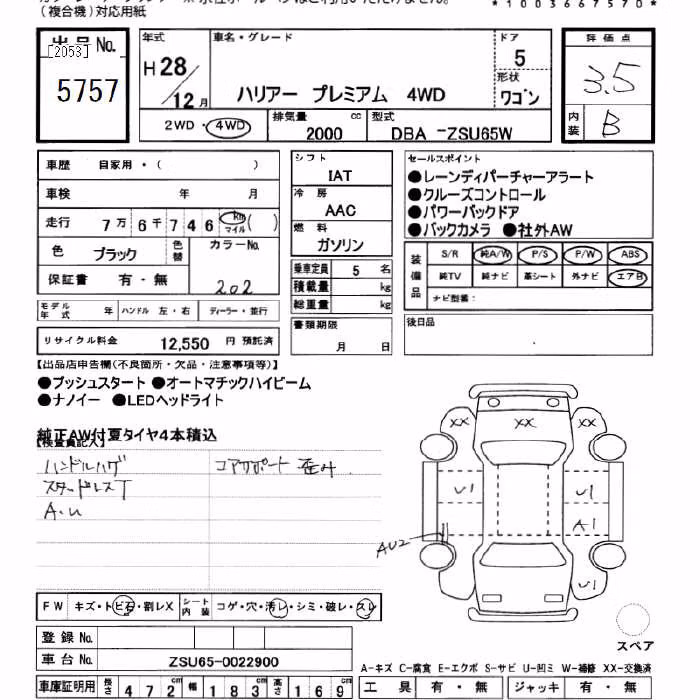 (複合機)対応用紙
*1003667570*
出品No.
[2053]
5757
年式
H28/12月
車名・グレード
ハリアー プレミアム 4WD
ドア
5
形状
ワゴン
2WD・4WD
排気量
2000 cc
型式
DBA -ZSU65W
評価点
3.5
内装
B
車歴 自家用・( )
車検 年 月
走行 7万6千746 km マイル ( )
色 ブラック 色替 カラーNo.
202
保証書 有・無
モデル年式 年 ハンドル 左・右 ディーラー・並行
リサイクル料金 12,550 円 預託済
シフト
IAT
冷房
AAC
燃料
ガソリン
乗車定員 5 名
積載量 kg
総重量 kg
書類期限
月 日
セールスポイント
●レーンディパーチャーアラート
●クルーズコントロール
●パワーバックドア
●バックカメラ ●社外AW
装備品
S/R 純A/W P/S P/W ABS
純TV 純ナビ 革シート 外ナビ エアB
ナビ型番:
後日品
【出品店申告欄(不良箇所・欠品・注意事項等)】
●プッシュスタート ●オートマチックハイビーム
●ナノイー ●LEDヘッドライト
純正AW付夏タイヤ4本積込
【検査員記入】
ハンドルハゲ
スタッドレスT
A.U
コアサポート 歪み
XX XX
U1 U1
A1
AU2
U1
スペア
FW キズ・トビ石・割レX シート内装 コゲ・穴・汚レ・シミ・破レ・スレ
登録No.
車台No. ZSU65-0022900
車庫証明用 長さ 472 cm 幅 183 cm 高さ 169 cm
A-キズ C-腐食 E-エクボ S-サビ U-凹ミ W-補修 XX-交換済
工具 有・無 ジャッキ 有・無